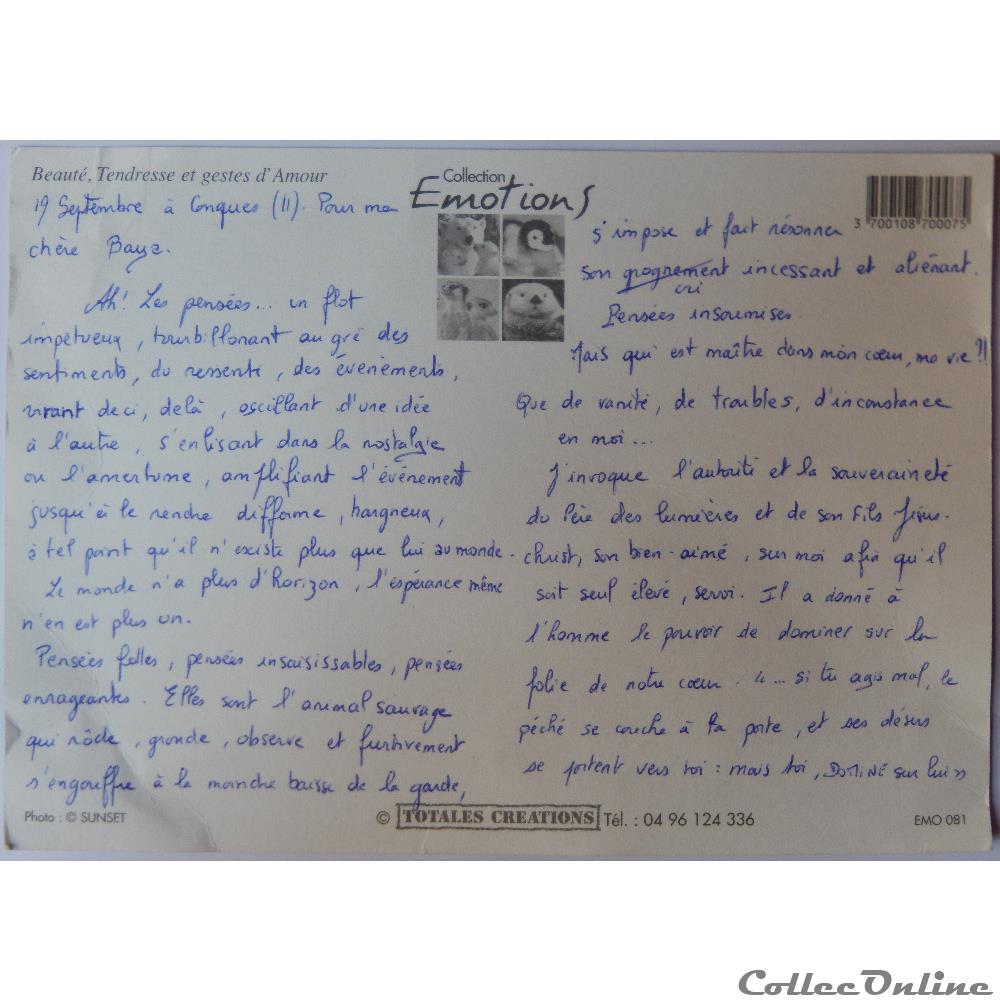 Beauté, Tendresse et gestes d'Amour
19 Septembre à Conques (11). Pour ma
chère Baya.
Ah! Les pensées... un flot
impétueux, tourbillonant au gré des
sentiments, du ressenti, des évènements,
virant deci, delà, oscillant d'une idée
à l'autre, s'enlisant dans la nostalgie
ou l'amertume, amplifiant l'évènement
jusqu'à le rendre difforme, hargneux,
à tel point qu'il n'existe plus que lui au monde.
Le monde n'a plus d'horizon, l'espérance même
n'en est plus un.
Pensées folles, pensées insaisissables, pensées
enrageantes. Elles sont l'animal sauvage
qui rôde, gronde, observe et furtivement
s'engouffre à la moindre baisse de la garde,
Collection
Emotions
3 700108 700075
s'impose et fait résonner
son grognement incessant et aliénant.
cri
Pensées insoumises.
Mais qui est maître dans mon cœur, ma vie?!
Que de vanité, de troubles, d'inconstance
en moi...
J'invoque l'autorité et la souveraineté
du Père des lumières et de son Fils Jésus-
christ, son bien-aimé, sur moi afin qu'il
soit seul élevé, servi. Il a donné à
l'homme le pouvoir de dominer sur la
folie de notre cœur. "... si tu agis mal, le
péché se couche à ta porte, et ses désirs
se portent vers toi : mais toi, DOMINE sur lui"
Photo : © SUNSET
© TOTALES CREATIONS Tél. : 04 96 124 336
EMO 081
CollecOnline